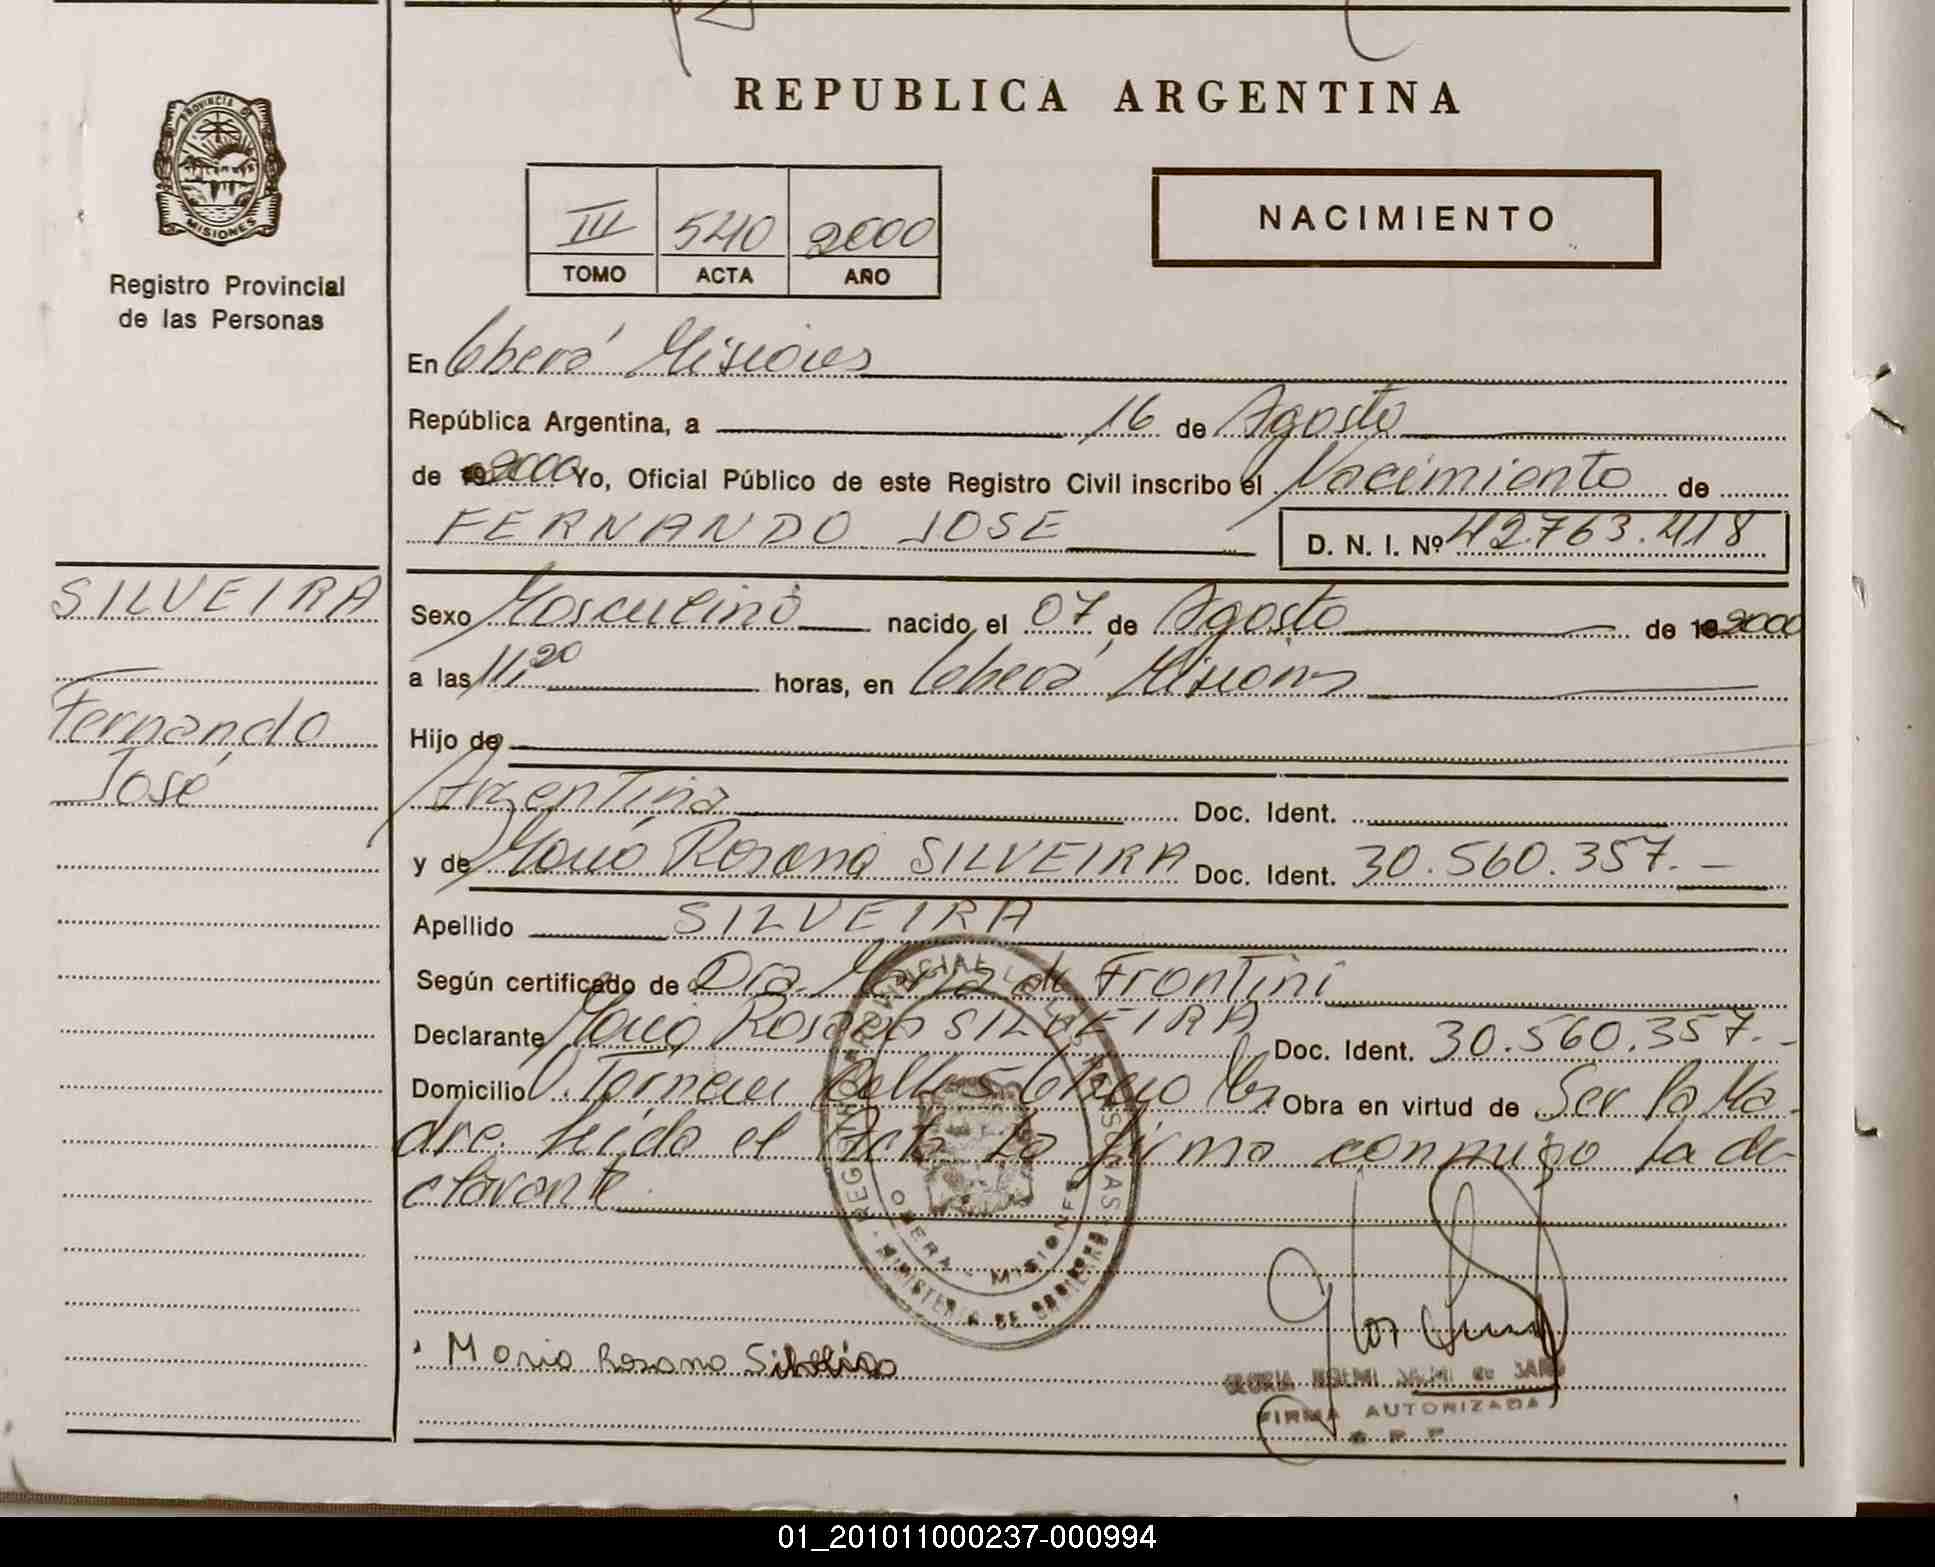 PROVINCIA DE
MISIONES
Registro Provincial
de las Personas
SILVEIRA
Fernando
José
REPUBLICA ARGENTINA
III 540 2000
TOMO ACTA AÑO
NACIMIENTO
En Oberá Misiones
República Argentina, a 16 de Agosto
de 19 2000 Yo, Oficial Público de este Registro Civil inscribo el Nacimiento de
FERNANDO JOSE D. N. I. Nº 42.763.418
Sexo Masculino nacido el 07 de Agosto de 19 2000
a las 11,20 horas, en Oberá Misiones
Hijo de
Argentina Doc. Ident.
y de María Rosana SILVEIRA Doc. Ident. 30.560.357.-
Apellido SILVEIRA
Según certificado de Dra. María de Frontini
Declarante María Rosana SILVEIRA Doc. Ident. 30.560.357.-
Domicilio Obra en virtud de Ser la Ma-
dre. Leída el Acta la firma conmigo la de-
clarante
REGISTRO PROVINCIAL DE LAS PERSONAS
OBERA - MISIONES
MINISTERIO DE GOBIERNO
Maria Rosana Silveira
GLORIA NOEMI de
FIRMA AUTORIZADA
01_201011000237-000994